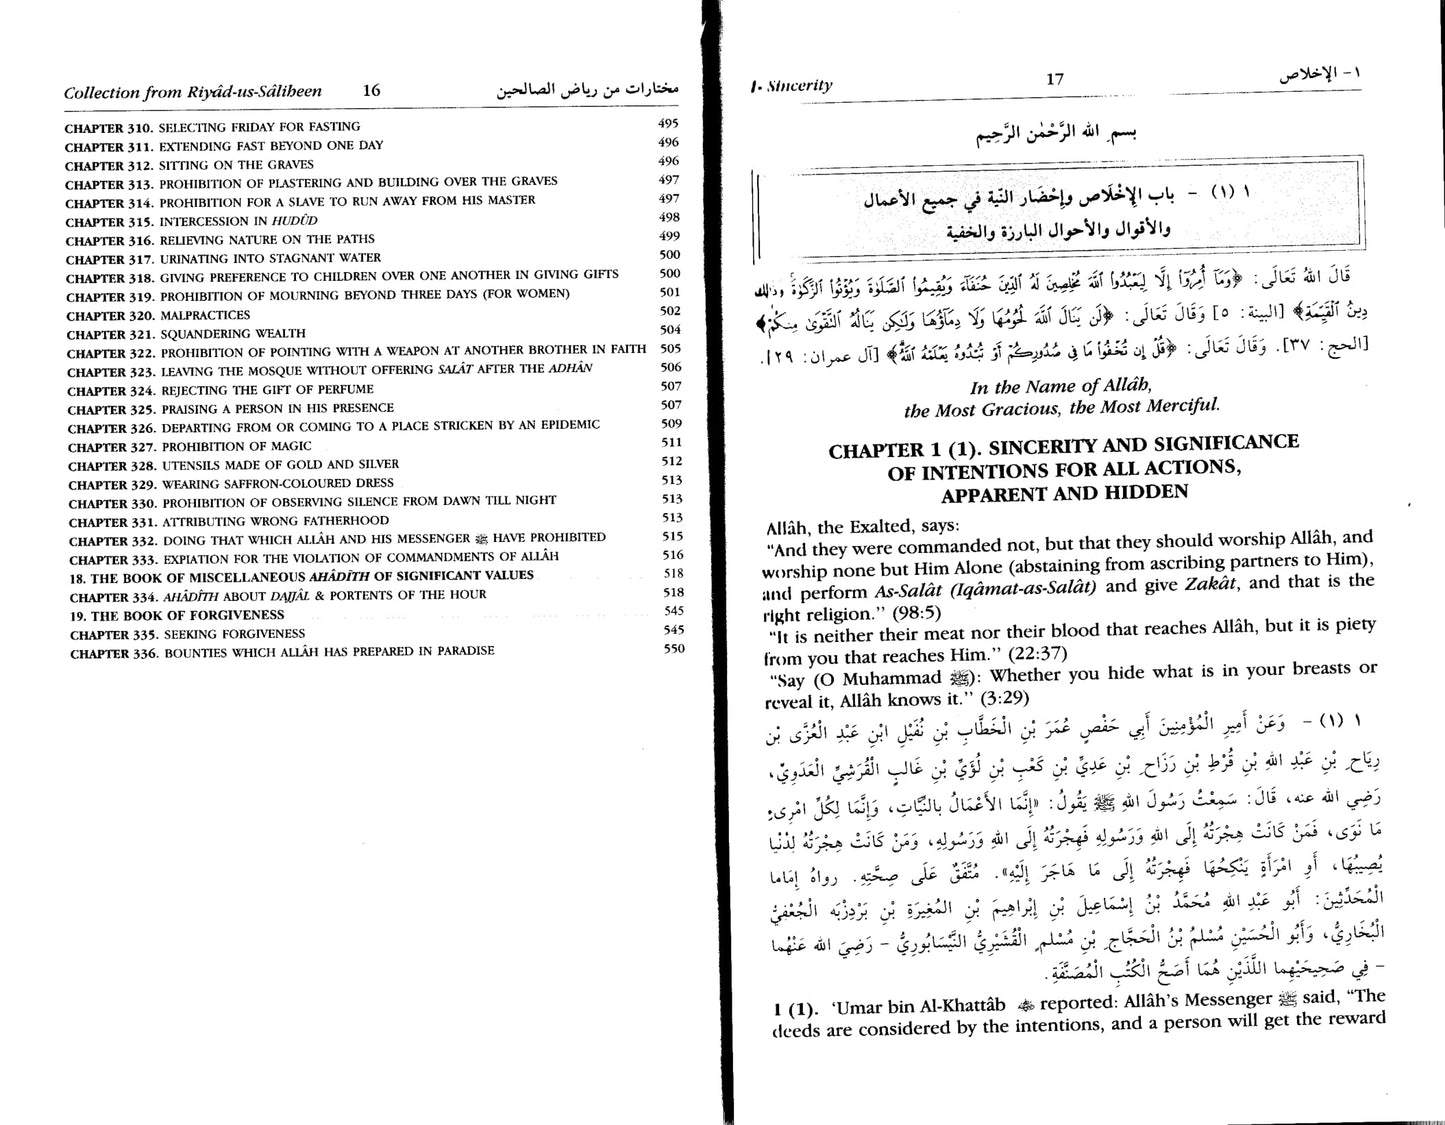 Collection from Riyâd-us-Sâliheen 16 مختارات من رياض الصالحين
CHAPTER 310. SELECTING FRIDAY FOR FASTING 495
CHAPTER 311. EXTENDING FAST BEYOND ONE DAY 496
CHAPTER 312. SITTING ON THE GRAVES 496
CHAPTER 313. PROHIBITION OF PLASTERING AND BUILDING OVER THE GRAVES 497
CHAPTER 314. PROHIBITION FOR A SLAVE TO RUN AWAY FROM HIS MASTER 497
CHAPTER 315. INTERCESSION IN HUDÛD 498
CHAPTER 316. RELIEVING NATURE ON THE PATHS 499
CHAPTER 317. URINATING INTO STAGNANT WATER 500
CHAPTER 318. GIVING PREFERENCE TO CHILDREN OVER ONE ANOTHER IN GIVING GIFTS 500
CHAPTER 319. PROHIBITION OF MOURNING BEYOND THREE DAYS (FOR WOMEN) 501
CHAPTER 320. MALPRACTICES 502
CHAPTER 321. SQUANDERING WEALTH 504
CHAPTER 322. PROHIBITION OF POINTING WITH A WEAPON AT ANOTHER BROTHER IN FAITH 505
CHAPTER 323. LEAVING THE MOSQUE WITHOUT OFFERING SALÂT AFTER THE ADHÂN 506
CHAPTER 324. REJECTING THE GIFT OF PERFUME 507
CHAPTER 325. PRAISING A PERSON IN HIS PRESENCE 507
CHAPTER 326. DEPARTING FROM OR COMING TO A PLACE STRICKEN BY AN EPIDEMIC 509
CHAPTER 327. PROHIBITION OF MAGIC 511
CHAPTER 328. UTENSILS MADE OF GOLD AND SILVER 512
CHAPTER 329. WEARING SAFFRON-COLOURED DRESS 513
CHAPTER 330. PROHIBITION OF OBSERVING SILENCE FROM DAWN TILL NIGHT 513
CHAPTER 331. ATTRIBUTING WRONG FATHERHOOD 513
CHAPTER 332. DOING THAT WHICH ALLÂH AND HIS MESSENGER ﷺ HAVE PROHIBITED 515
CHAPTER 333. EXPIATION FOR THE VIOLATION OF COMMANDMENTS OF ALLÂH 516
18. THE BOOK OF MISCELLANEOUS AHÂDÎTH OF SIGNIFICANT VALUES 518
CHAPTER 334. AHÂDÎTH ABOUT DAJJÂL & PORTENTS OF THE HOUR 518
19. THE BOOK OF FORGIVENESS 545
CHAPTER 335. SEEKING FORGIVENESS 545
CHAPTER 336. BOUNTIES WHICH ALLÂH HAS PREPARED IN PARADISE 550
1- Sincerity 17 ١- الإخلاص
بسم الله الرَّحْمٰن الرَّحِيم
١ (١) - باب الإخْلَاص وإحْضَار النِّية في جميع الأعمال
والأقوال والأحوال البارزة والخفية
قَالَ اللهُ تَعَالَى: ﴿وَمَآ أُمِرُوٓاْ إِلَّا لِيَعْبُدُواْ ٱللَّهَ مُخْلِصِينَ لَهُ ٱلدِّينَ حُنَفَآءَ وَيُقِيمُواْ ٱلصَّلَوٰةَ وَيُؤْتُواْ ٱلزَّكَوٰةَ وَذَٰلِكَ
دِينُ ٱلْقَيِّمَةِ﴾ [البينة: ٥] وَقَالَ تَعَالَى: ﴿لَن يَنَالَ ٱللَّهَ لُحُومُهَا وَلَا دِمَآؤُهَا وَلَٰكِن يَنَالُهُ ٱلتَّقْوَىٰ مِنكُمْ﴾
[الحج: ٣٧]. وَقَالَ تَعَالَى: ﴿قُلْ إِن تُخْفُواْ مَا فِى صُدُورِكُمْ أَوْ تُبْدُوهُ يَعْلَمْهُ ٱللَّهُ﴾ [آل عمران: ٢٩].
In the Name of Allâh,
the Most Gracious, the Most Merciful.
CHAPTER 1 (1). SINCERITY AND SIGNIFICANCE
OF INTENTIONS FOR ALL ACTIONS,
APPARENT AND HIDDEN
Allâh, the Exalted, says:
"And they were commanded not, but that they should worship Allâh, and
worship none but Him Alone (abstaining from ascribing partners to Him),
and perform As-Salât (Iqâmat-as-Salât) and give Zakât, and that is the
right religion." (98:5)
"It is neither their meat nor their blood that reaches Allâh, but it is piety
from you that reaches Him." (22:37)
"Say (O Muhammad ﷺ): Whether you hide what is in your breasts or
reveal it, Allâh knows it." (3:29)
١ (١) - وَعَنْ أَمِيرِ الْمُؤْمِنِينَ أَبِي حَفْصٍ عُمَرَ بْنِ الْخَطَّابِ بْنِ نُفَيْلِ ابْنِ عَبْدِ الْعُزَّى بْنِ
رِيَاحِ بْنِ عَبْدِ اللهِ بْنِ قُرْطِ بْنِ رَزَاحِ بْنِ عَدِيِّ بْنِ كَعْبِ بْنِ لُؤَيِّ بْنِ غَالبٍ الْقُرَشِيِّ الْعَدَوِيِّ،
رَضِي الله عنه، قَالَ: سَمِعْتُ رَسُولَ اللهِ ﷺ يَقُولُ: «إنَّمَا الأَعْمَالُ بالنِّيَّاتِ، وَإنَّمَا لِكُلِّ امْرِىءٍ
مَا نَوَى، فَمَنْ كَانَتْ هِجْرَتُهُ إلَى اللهِ وَرَسُولِهِ فَهِجْرَتُهُ إلَى اللهِ وَرَسُولِهِ، وَمَنْ كَانَتْ هِجْرَتُهُ لِدُنْيَا
يُصِيبُهَا، أَوِ امْرَأَةٍ يَنْكِحُهَا فَهِجْرَتُهُ إلَى مَا هَاجَرَ إلَيْهِ». مُتَّفَقٌ عَلَى صِحَّتِهِ. رواهُ إمَاما
الْمُحَدِّثِينَ: أَبُو عَبْدِ اللهِ مُحَمَّدُ بْنُ إسْمَاعِيلَ بْنِ إبْراهِيمَ بْنِ المُغِيرَةِ بْنِ بَرْدِزْبَه الْجُعْفِيُّ
الْبُخَارِيُّ، وَأَبُو الْحُسَيْنِ مُسْلمُ بْنُ الْحَجَّاجِ بْنِ مُسْلمٍ الْقُشَيْرِيُّ النَّيْسَابُورِيُّ - رَضِيَ الله عَنْهُما
- فِي صَحِيحَيْهِما اللَّذَيْنِ هُمَا أَصَحُّ الْكُتُبِ الْمُصَنَّفَةِ.
1 (1). ‘Umar bin Al-Khattâb ؓ reported: Allâh's Messenger ﷺ said, "The
deeds are considered by the intentions, and a person will get the reward